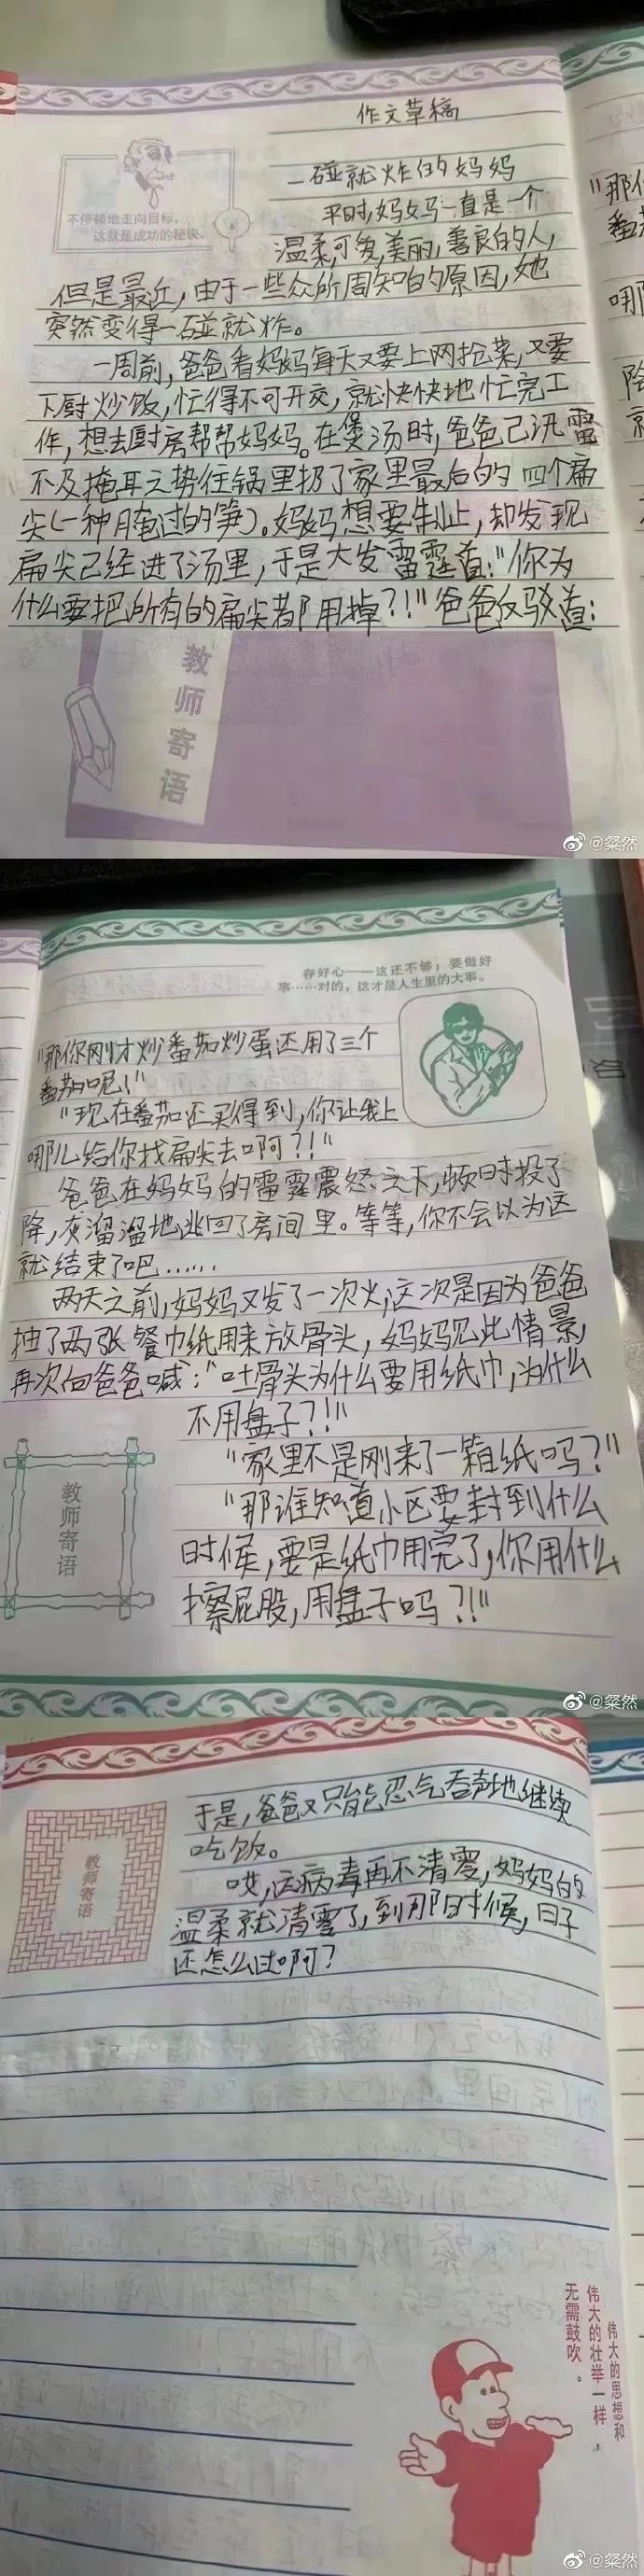 作文草稿
不停顿地走向目标，
这就是成功的秘诀。
一碰就炸的妈妈
平时,妈妈一直是一个
温柔,可爱,美丽,善良的人,
但是最近,由于一些众所周知的原因,她
突然变得一碰就炸。
一周前,爸爸看妈妈每天又要上网抢菜,又要
下厨炒饭,忙得不可开交,就快快地忙完工
作,想去厨房帮帮妈妈。在煲汤时,爸爸已汛雷
不及掩耳之势往锅里扔了家里最后的四个扁
尖(一种腌过的笋)。妈妈想要制止,却发现
扁尖已经进了汤里,于是大发雷霆道:"你为
什么要把所有的扁尖都用掉?!"爸爸反驳道:
教师寄语
@粲然
存好心——这还不够；要做好
事……对的，这才是人生里的大事。
"那你刚才炒番茄炒蛋还用了三个
番茄呢!"
"现在番茄还买得到,你让我上
哪儿给你找扁尖去啊?!"
爸爸在妈妈的雷霆震怒之下,顿时投了
降,灰溜溜地逃回了房间里。等等,你不会以为这
就结束了吧……
两天之前,妈妈又发了一次火,这次是因为爸爸
抽了两张餐巾纸用来放骨头,妈妈见此情景,
再次向爸爸喊:"吐骨头为什么要用纸巾,为什么
不用盘子?!"
"家里不是刚来了一箱纸吗?"
"那谁知道小区要封到什么
时候,要是纸巾用完了,你用什么
擦屁股,用盘子吗?!"
教师寄语
@粲然
于是,爸爸又只能忍气吞声地继续
吃饭。
哎,这病毒再不清零,妈妈的
温柔就清零了,到那时候,日子
还怎么过啊?
教师寄语
伟大的思想和
伟大的壮举一样，
无需鼓吹。
@粲然